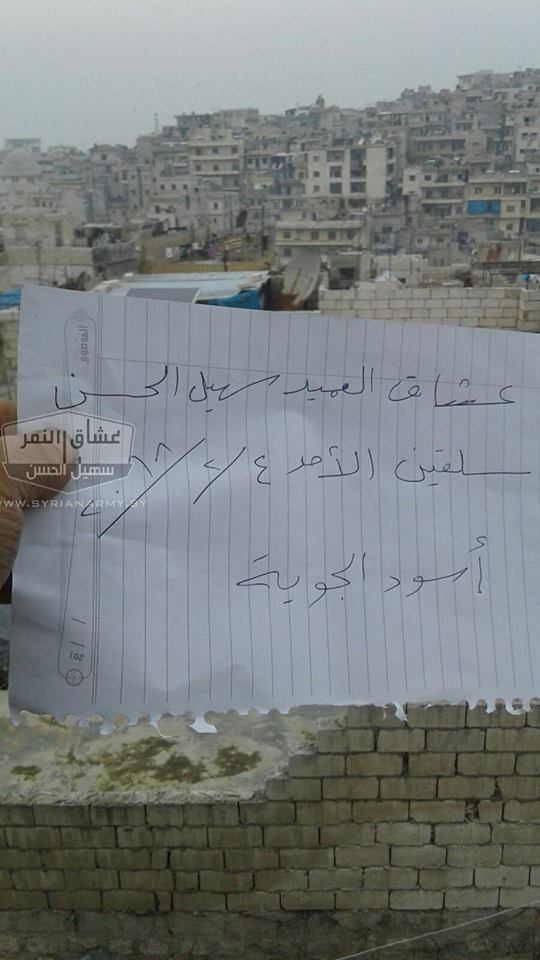 عشاق العميد سهيل الحسن
سلقين الأحد ٤/٢/٢٠١٨
أسود الجوية
الموضوع
/ / 201
عشاق النمر
سهيل الحسن
WWW.SYRIANARMY.SY